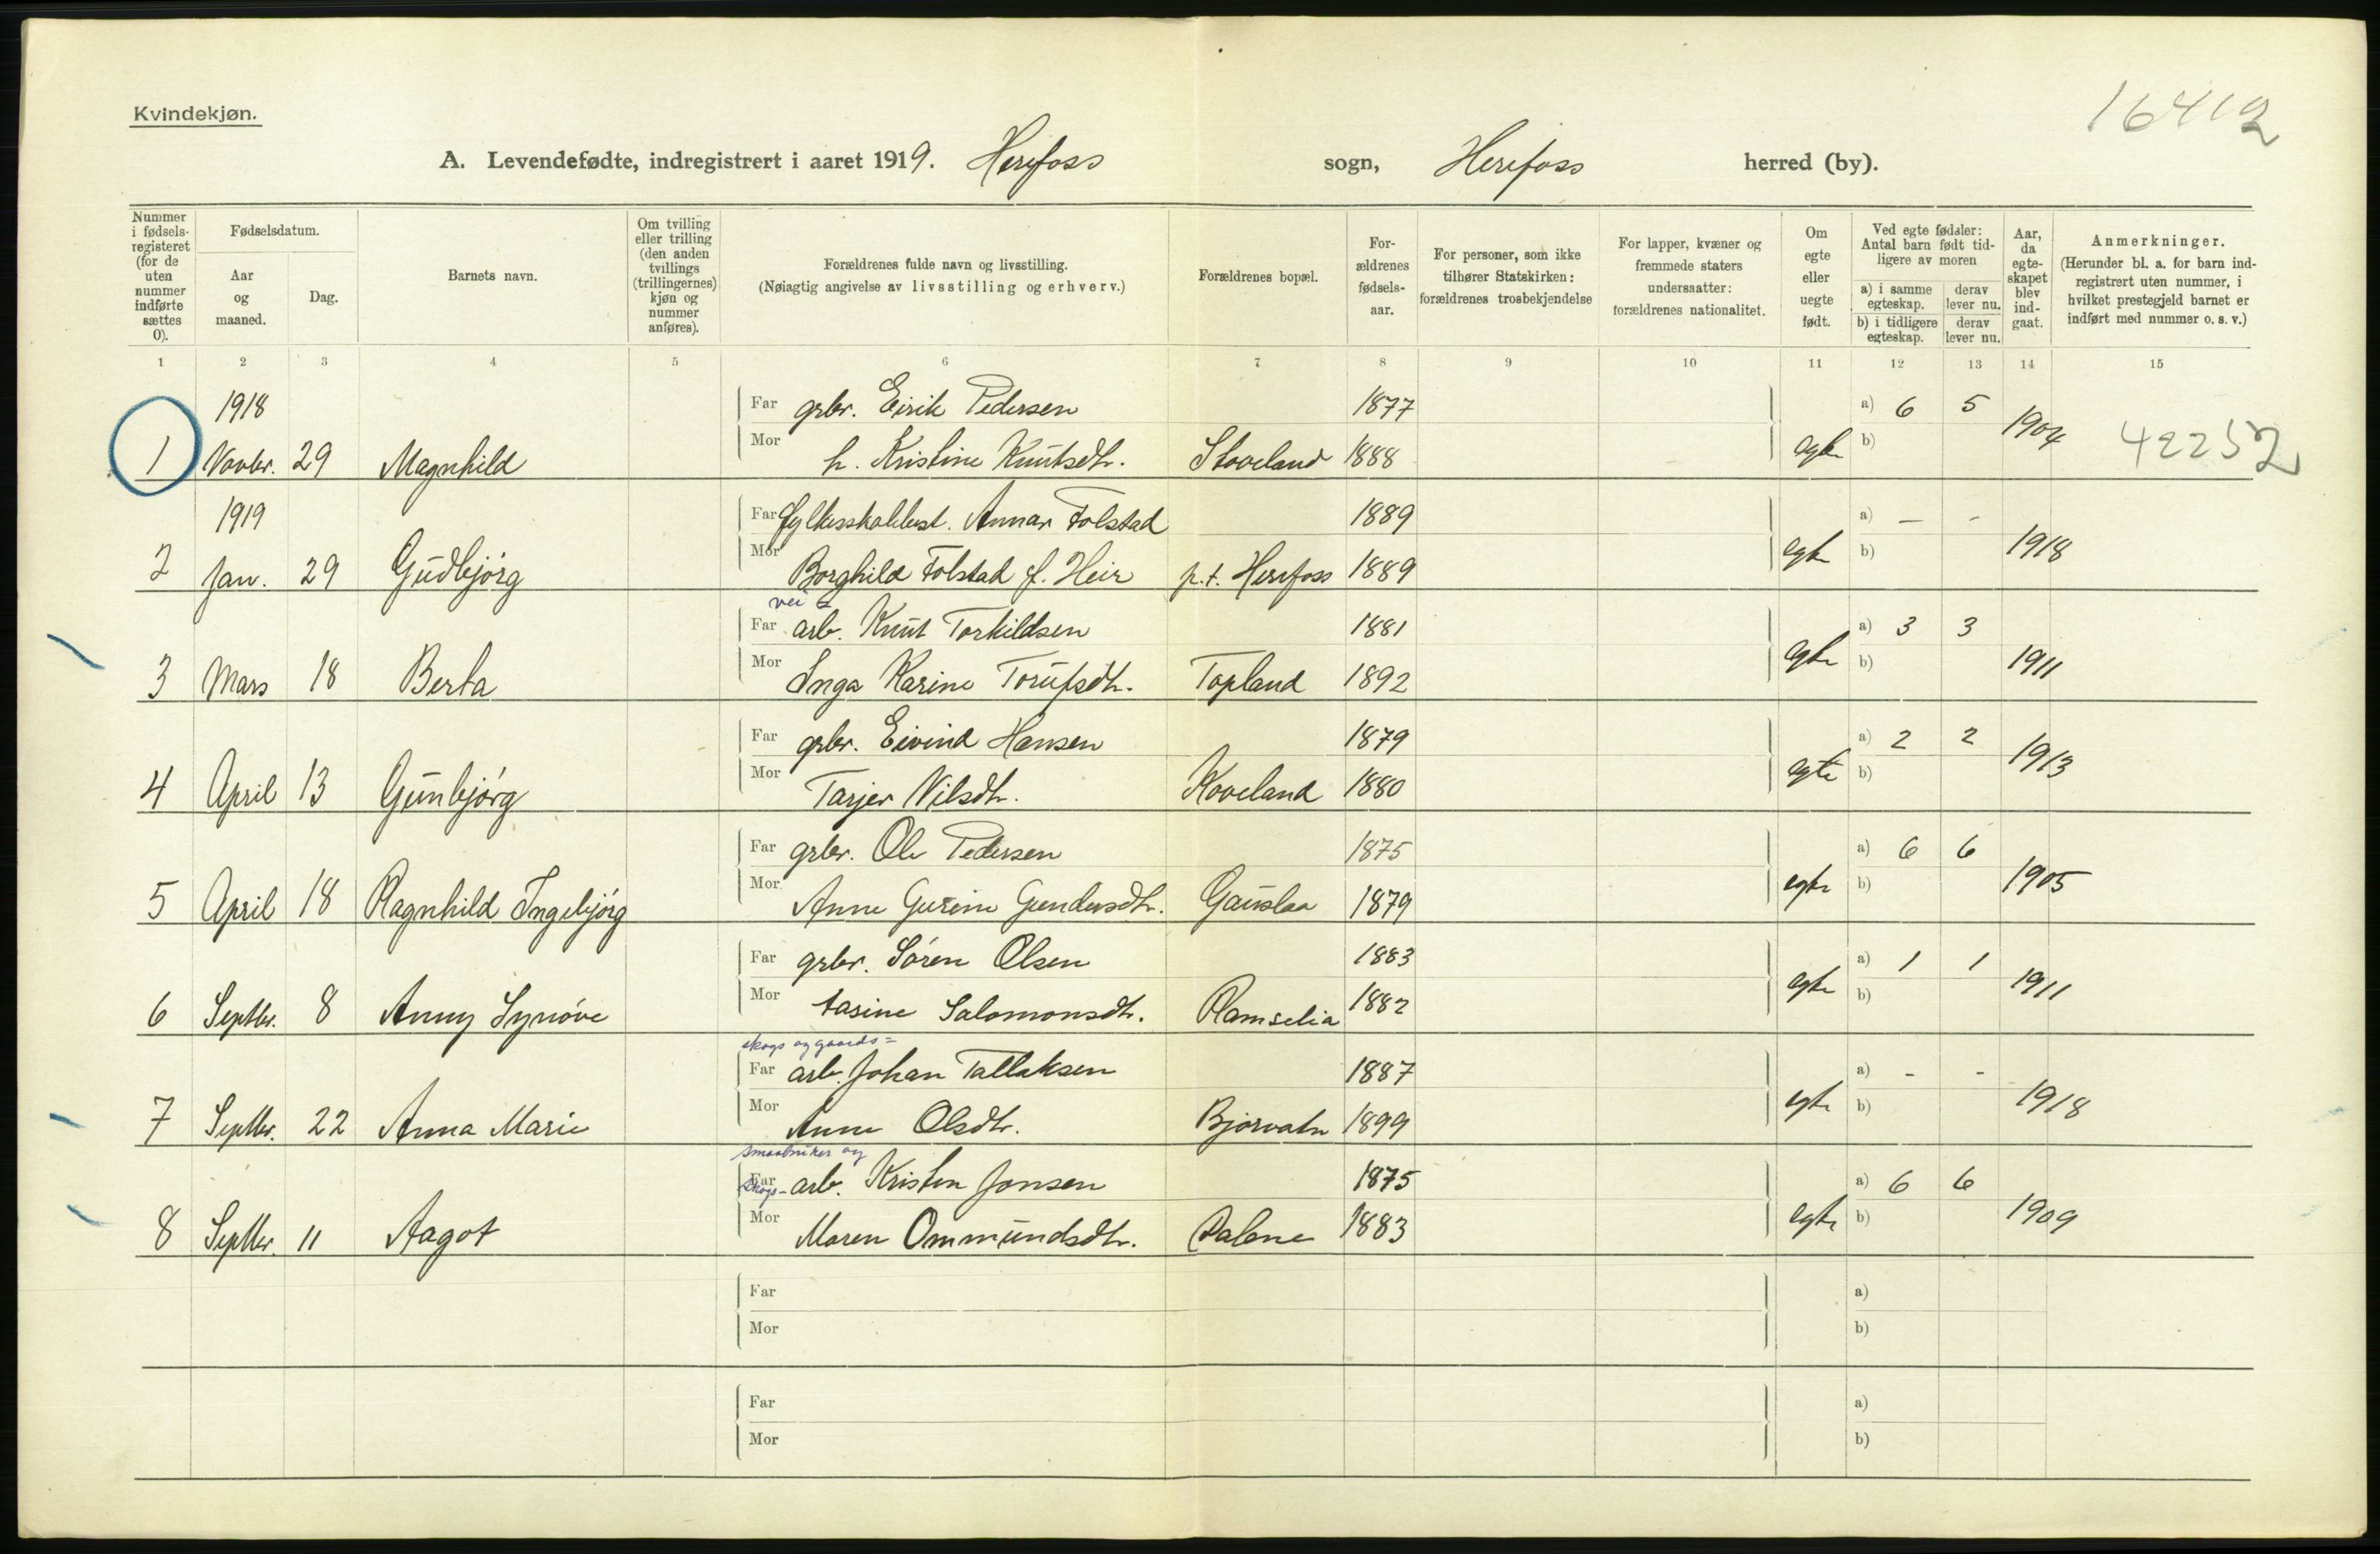 Kvindekjøn.
16412
A. Levendefødte, indregistrert i aaret 1919. Herefoss sogn, Herefoss herred (by).
Nummer i fødselsregisteret (for de uten nummer indførte sættes 0).
Fødselsdatum.
Aar og maaned.
Dag.
Barnets navn.
Om tvilling eller trilling (den anden tvillings (trillingernes) kjøn og nummer anføres).
Forældrenes fulde navn og livsstilling.
(Nøiagtig angivelse av livsstilling og erhverv.)
Forældrenes bopæl.
Forældrenes fødselsaar.
For personer, som ikke tilhører Statskirken: forældrenes trosbekjendelse
For lapper, kvæner og fremmede staters undersaatter: forældrenes nationalitet.
Om egte eller uegte født.
Ved egte fødsler: Antal barn født tidligere av moren
a) i samme egteskap. derav lever nu.
b) i tidligere egteskap. derav lever nu.
Aar, da egteskapet blev indgaat.
Anmerkninger.
(Herunder bl. a. for barn indregistrert uten nummer, i hvilket prestegjeld barnet er indført med nummer o. s. v.)
1 2 3 4 5 6 7 8 9 10 11 12 13 14 15
1918 Far grbr. Eirik Pedersen 1877 a) 6 5
1 Novbr. 29 Magnhild Mor h. Kristine Knutsdtr. Stoveland 1888 egte b) 1904 42252
1919 Far fylkesskolebest. Annar Tolstad 1889 a) — -
2 Jan. 29 Gudbjørg Mor Borghild Tolstad f. Heir p.t. Herefoss 1889 egte b) 1918
vei
Far arb. Knut Torkildsen 1881 a) 3 3
3 Mars 18 Berta Mor Inga Karine Torufsdtr. Topland 1892 egte b) 1911
Far grbr. Eivind Hansen 1879 a) 2 2
4 April 13 Gunbjørg Mor Tarjer Nilsdtr. Koveland 1880 egte b) 1913
Far grbr. Ole Pedersen 1875 a) 6 6
5 April 18 Ragnhild Ingebjørg Mor Anne Gurine Gundersdtr. Gauslaa 1879 egte b) 1905
Far grbr. Søren Olsen 1883 a) 1 1
6 Septbr. 8 Anny Synøve Mor Tasine Salomonsdtr. Ramselia 1882 egte b) 1911
skogs og gaards=
Far arb. Johan Tallaksen 1887 a) - -
7 Septbr. 22 Anna Marie Mor Anne Olsdtr. Bjorvatn 1899 egte b) 1918
smaabruker og
Far skogs- arb. Kristen Jonsen 1875 a) 6 6
8 Septbr. 11 Aagot Mor Maren Ommundsdtr. Dalene 1883 egte b) 1909
Far a)
Mor b)
Far a)
Mor b)